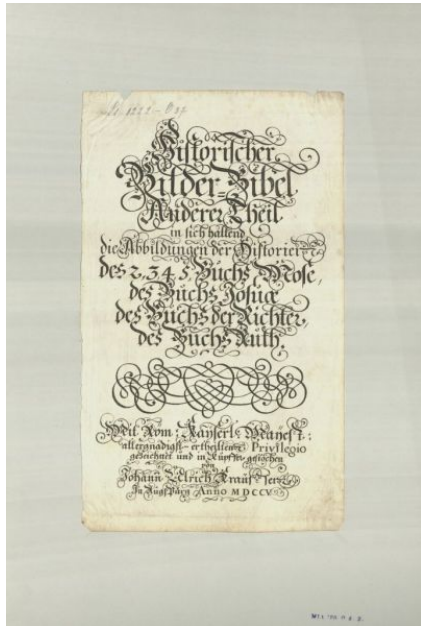 Historischer
Bilder=Bibel
Anderer Theil
in sich haltend
die Abbildungen der Historien
des 2, 3 4 5 Buchs Mose,
des Buchs Josuæ
des Buchs der Richter,
des Buchs Ruth.
Mit Röm: Kayserl: Mayest:
allergnädigst ertheiltem Privilegio
gezeichnet und in Kupffer gestochen
von
Johann Ulrich Krauß
In Augspurg Anno MDCCV